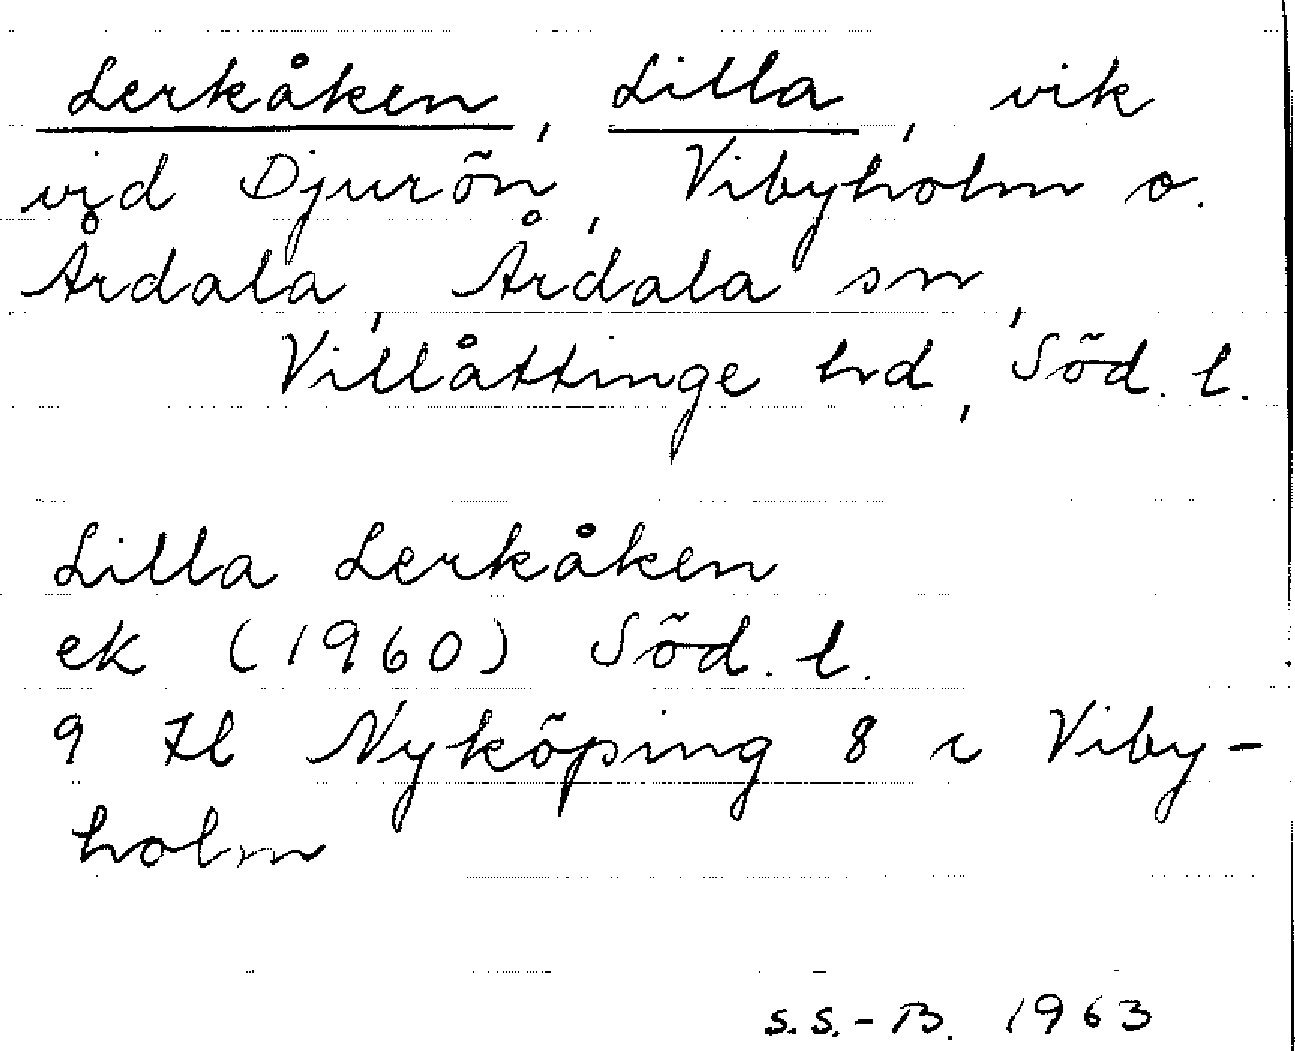 Lerkåken, Lilla, vik
vid Djurön, Vibyholm o.
Årdala, Årdala sn,
Villåttinge hd, Söd. l.
Lilla Lerkåken
ek (1960) Söd. l.
9 H Nyköping 8 c Viby-
holm
S.S.-B. 1963